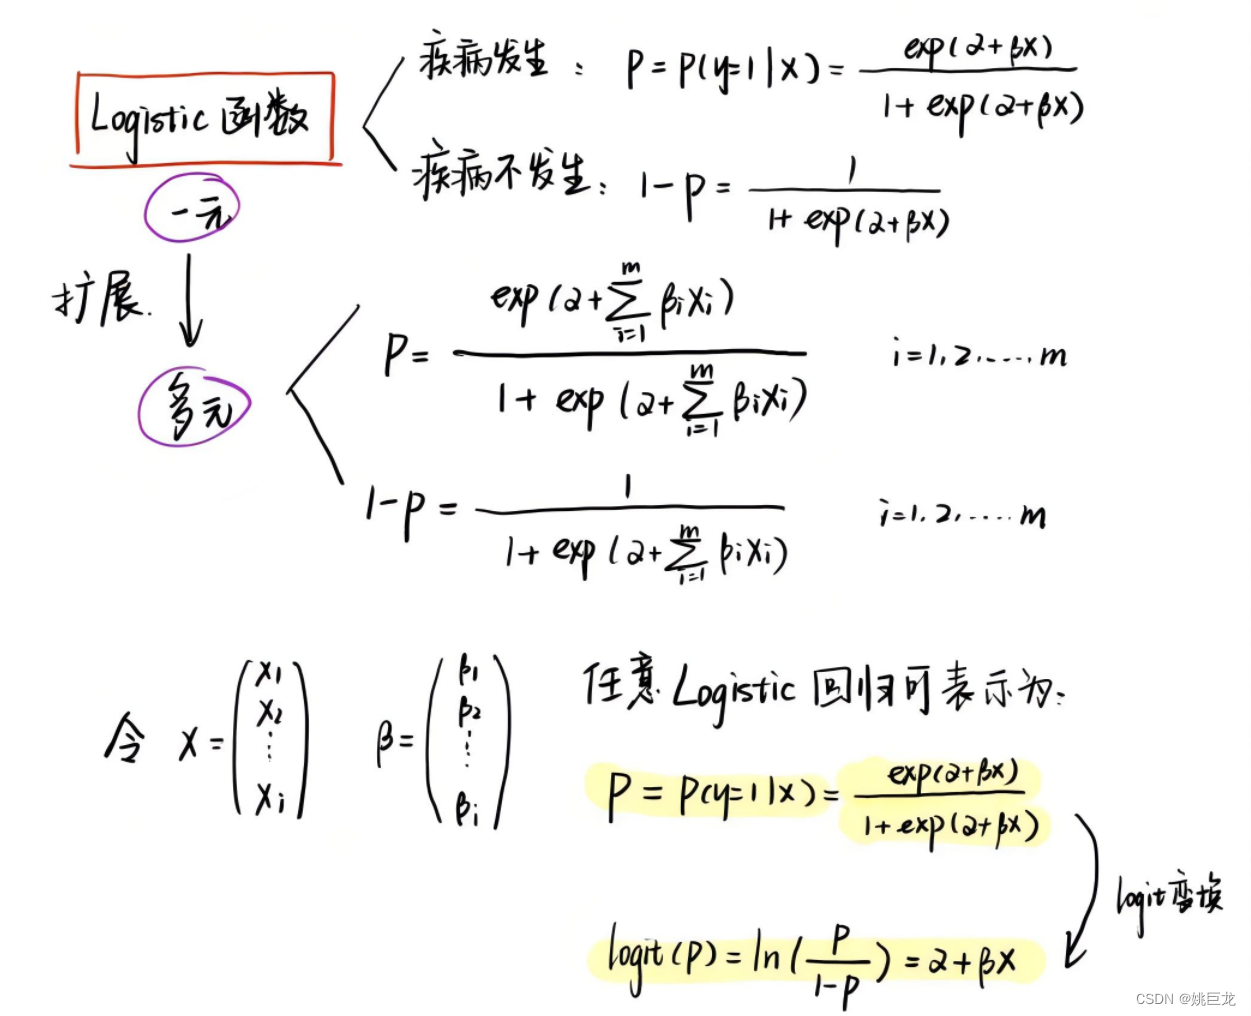 Logistic 函数
疾病发生： P = P(y=1|x) = exp(α+βx) / 1+exp(α+βx)
疾病不发生： 1-P = 1 / 1+exp(α+βx)
一元
扩展.
多元
P = exp(α+∑_{i=1}^{m} βixi) / 1+exp(α+∑_{i=1}^{m} βixi) i=1,2,....,m
1-P = 1 / 1+exp(α+∑_{i=1}^{m} βixi) i=1,2,....,m
令 X = (X1 X2 ⋮ Xi) β = (β1 β2 ⋮ βi)
任意 Logistic 回归可表示为:
P = P(y=1|x) = exp(α+βx) / 1+exp(α+βx)
logit变换
logit(P) = ln(P / 1-P) = α+βx
CSDN @姚巨龙